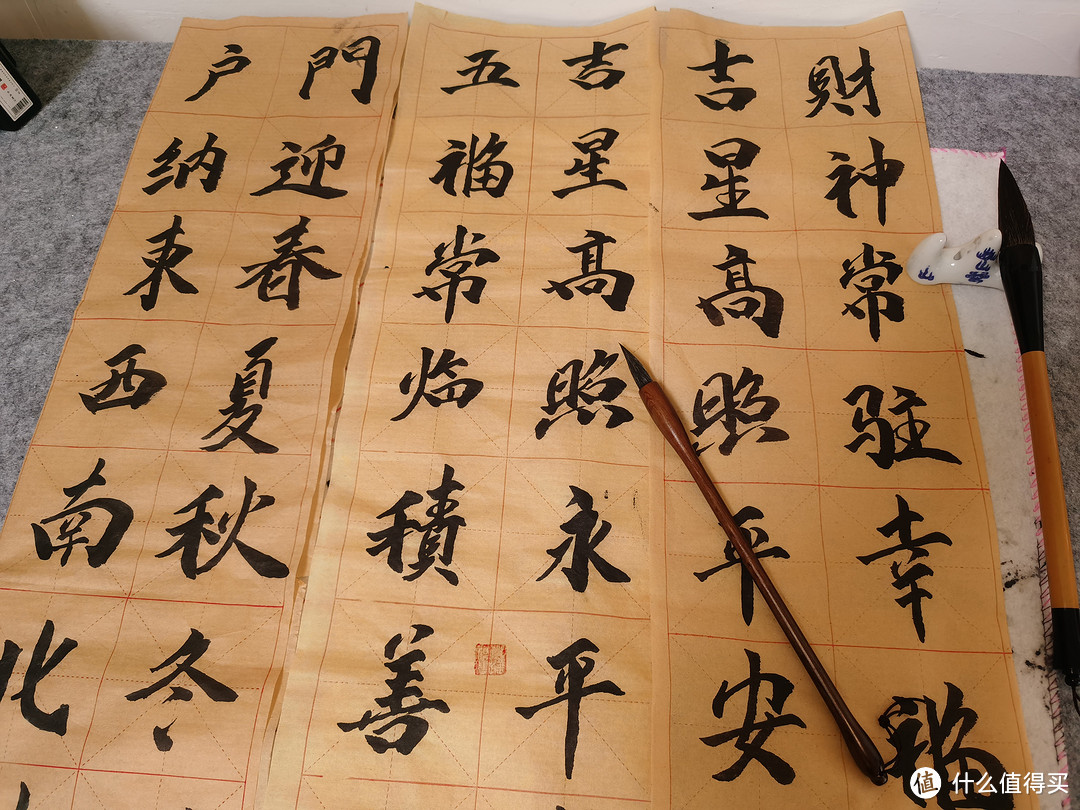 財神常駐幸福
吉星高照平安
吉星高照永平
五福常临積善
門迎春夏秋冬
户纳東西南北
值 什么值得买